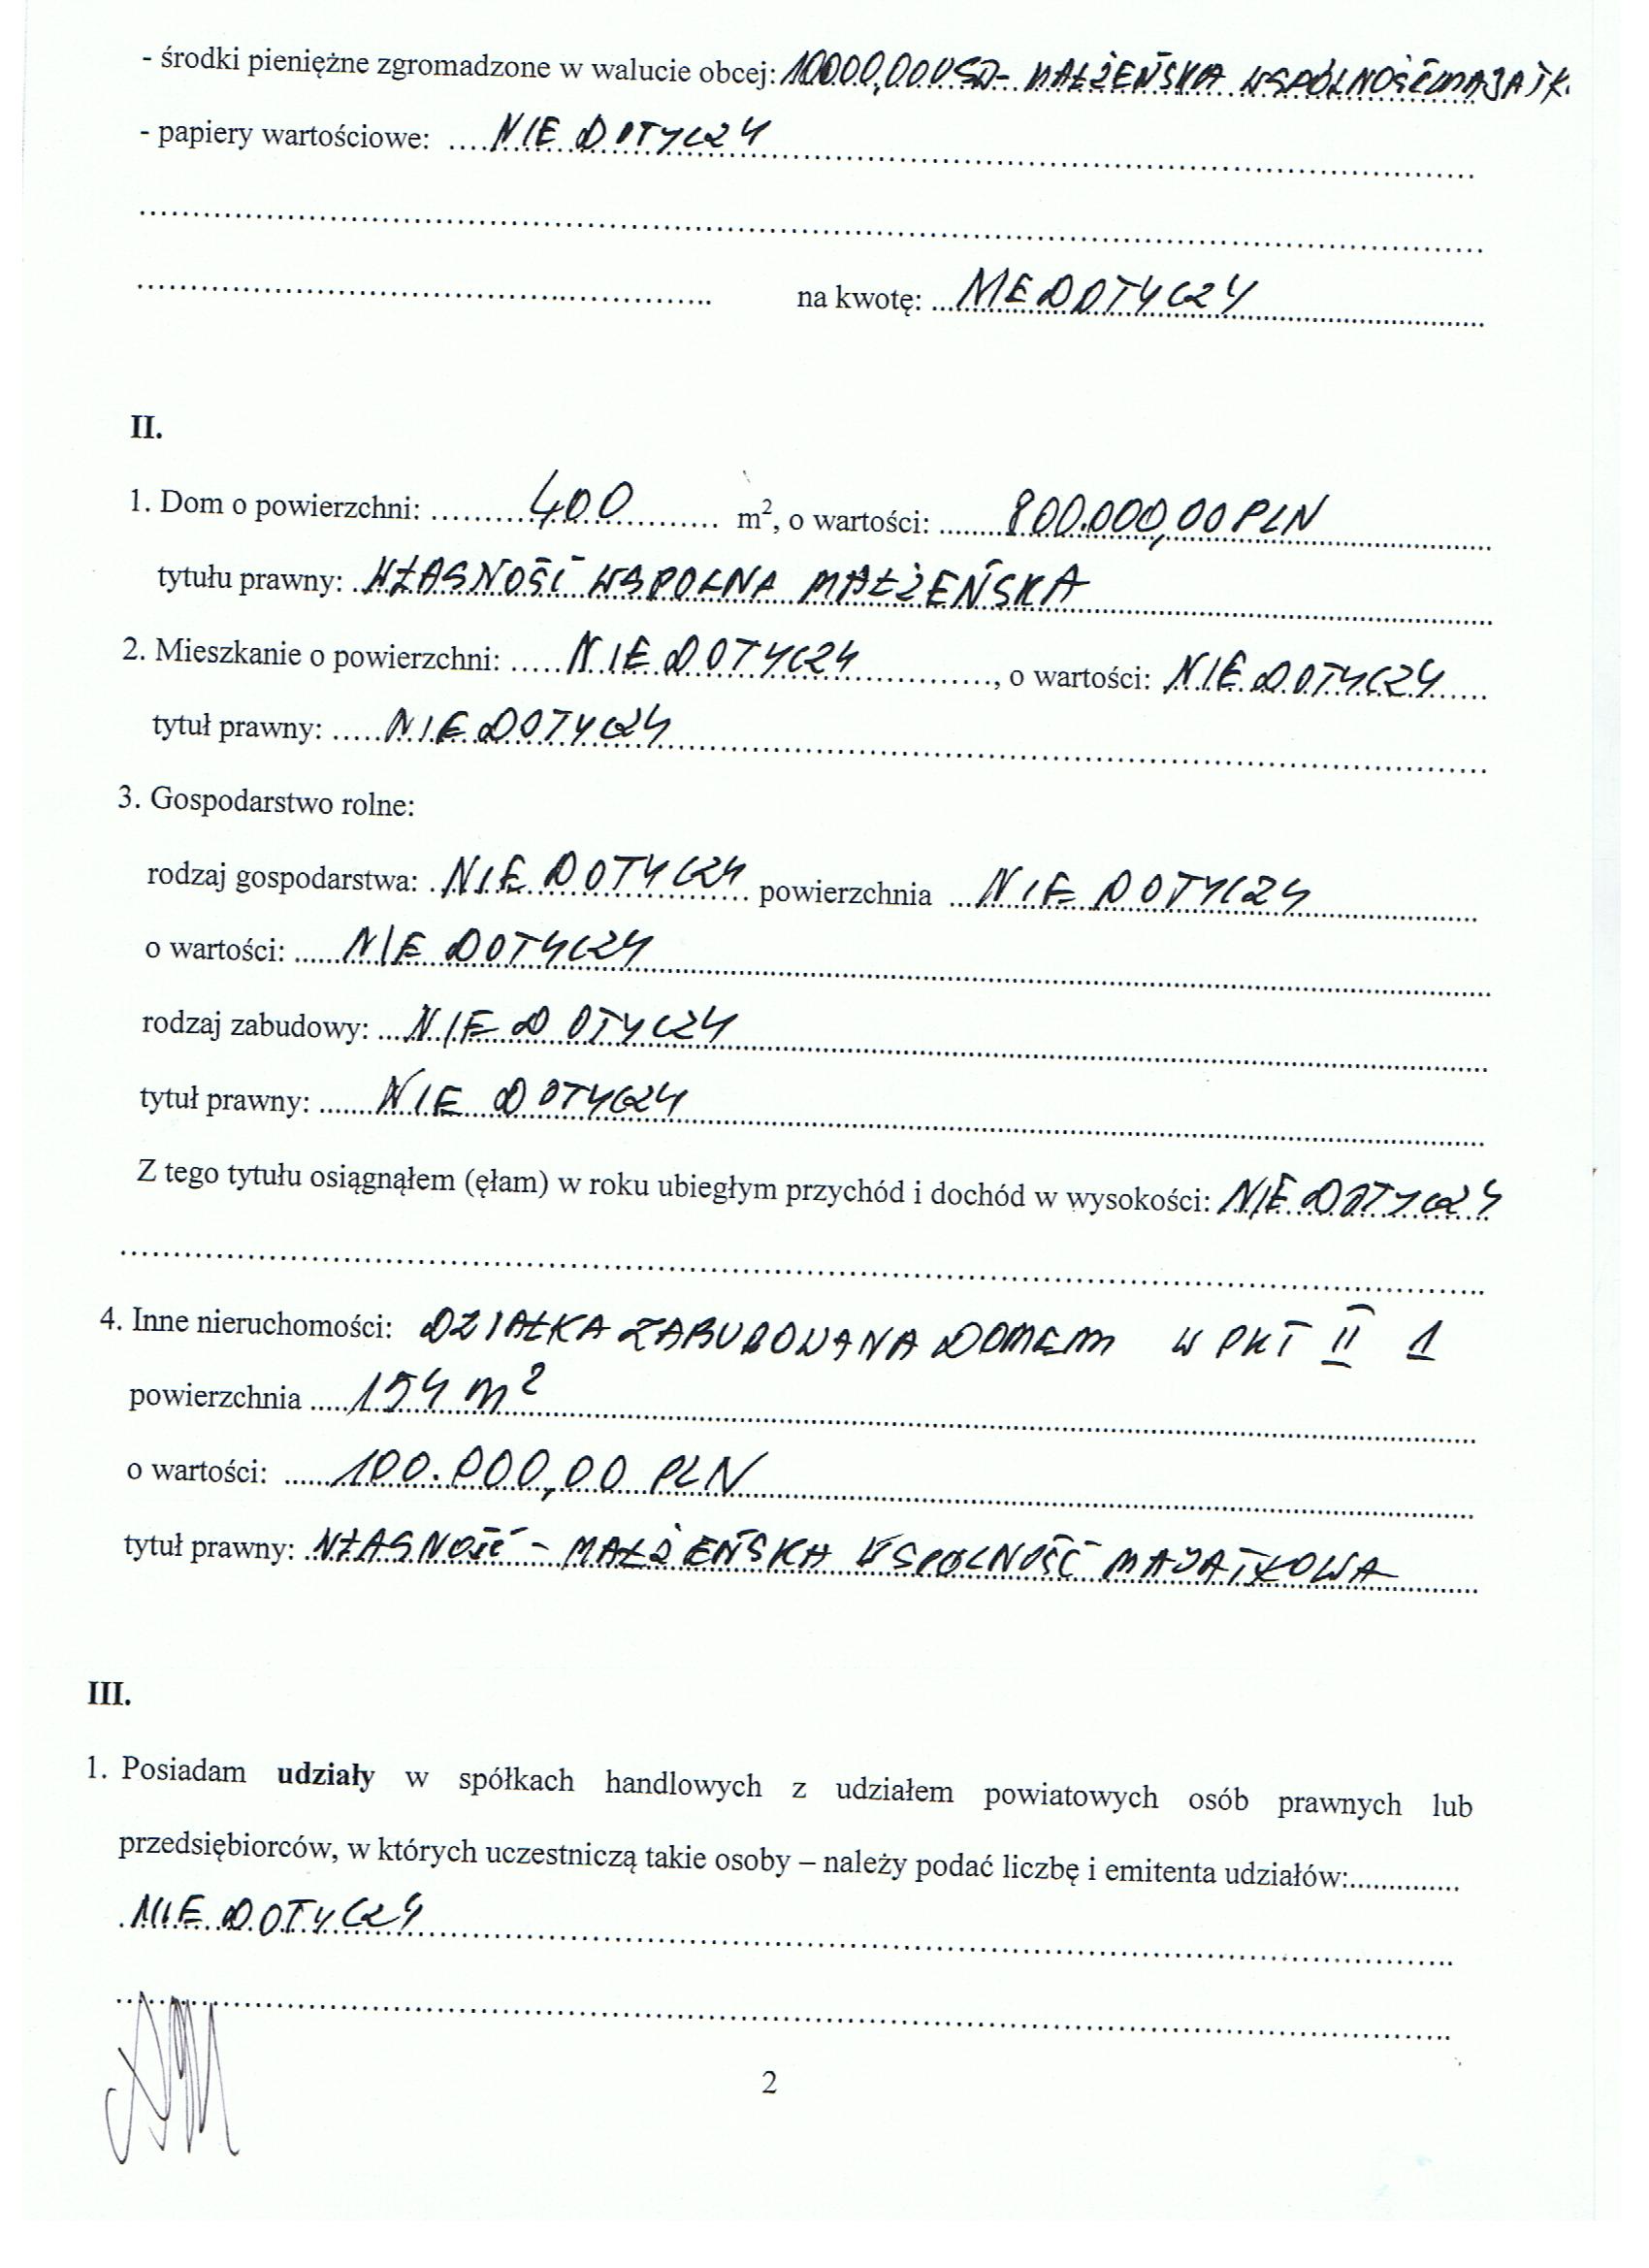 - środki pieniężne zgromadzone w walucie obcej: 10000,00 USD - MAŁŻEŃSKA WSPÓLNOŚĆ MAJĄTK.
- papiery wartościowe: ....NIE DOTYCZY....
na kwotę: ...NIE DOTYCZY...
II.
1. Dom o powierzchni: ......400...... m², o wartości: ......800.000,00 PLN......
tytułu prawny: .WŁASNOŚĆ WSPOLNA MAŁŻEŃSKA......
2. Mieszkanie o powierzchni: .....NIE DOTYCZY......, o wartości: NIE DOTYCZY.....
tytuł prawny: .....NIE DOTYCZY......
3. Gospodarstwo rolne:
rodzaj gospodarstwa: .NIE DOTYCZY. powierzchnia ...NIE DOTYCZY......
o wartości: .....NIE DOTYCZY......
rodzaj zabudowy: ...NIE DOTYCZY......
tytuł prawny: ......NIE DOTYCZY......
Z tego tytułu osiągnąłem (ęłam) w roku ubiegłym przychód i dochód w wysokości: NIE DOTYCZY
4. Inne nieruchomości: DZIAŁKA ZABUDOWANA DOMEM W PKT II 1
powierzchnia .....154 m²......
o wartości: ......100.000,00 PLN......
tytuł prawny: .WŁASNOŚĆ - MAŁŻEŃSKA WSPOLNOŚĆ MAJĄTKOWA......
III.
1. Posiadam udziały w spółkach handlowych z udziałem powiatowych osób prawnych lub
przedsiębiorców, w których uczestniczą takie osoby – należy podać liczbę i emitenta udziałów:..............
.NIE DOTYCZY......
2